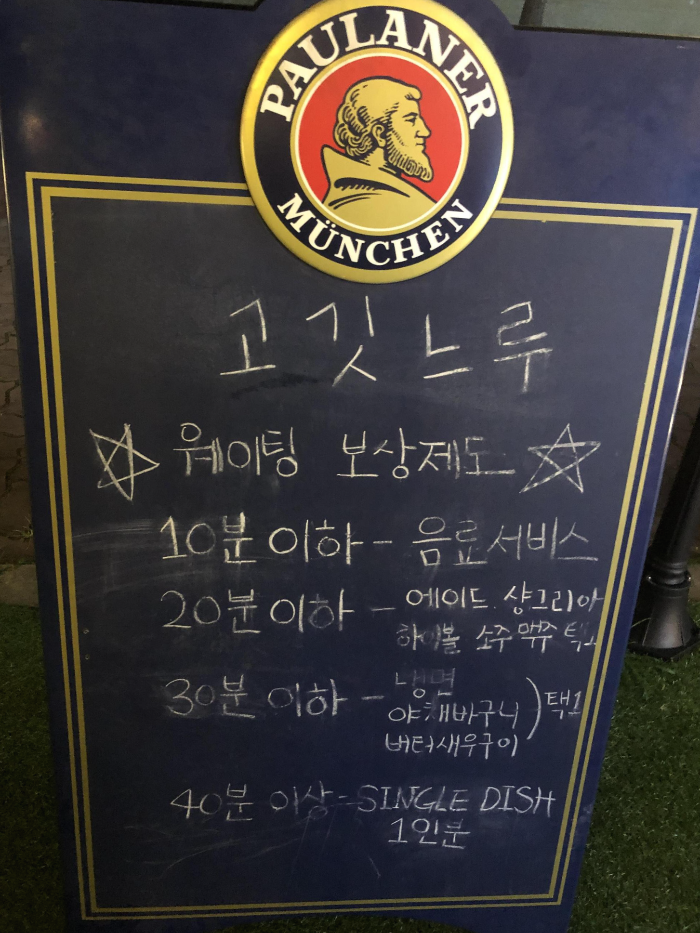 PAULANER
MÜNCHEN
고깃느루
웨이팅 보상제도
10분 이하 - 음료서비스
20분 이하 - 에이드 샹그리아
하이볼 소주 맥주 택1
30분 이하 - 냉면
야채바구니
버터새우구이
택1
40분 이상 - SINGLE DISH
1인분